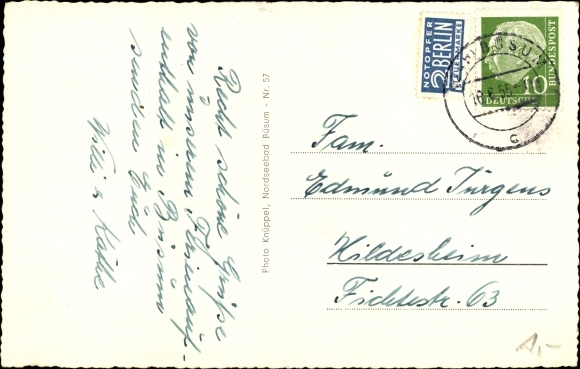 Recht schöne Grüße
von unserem Ferienauf-
enthalt in Büsum
senden Euch
Willi & Käthe
Photo Knüppel, Nordseebad Büsum - Nr. 57
NOTOPFER
2 BERLIN
STEUERMARKE
DEUTSCHE
BUNDESPOST
10
BÜSUM
c
Fam.
Edmund Jürgens
Hildesheim
Fichtestr. 63
1,-